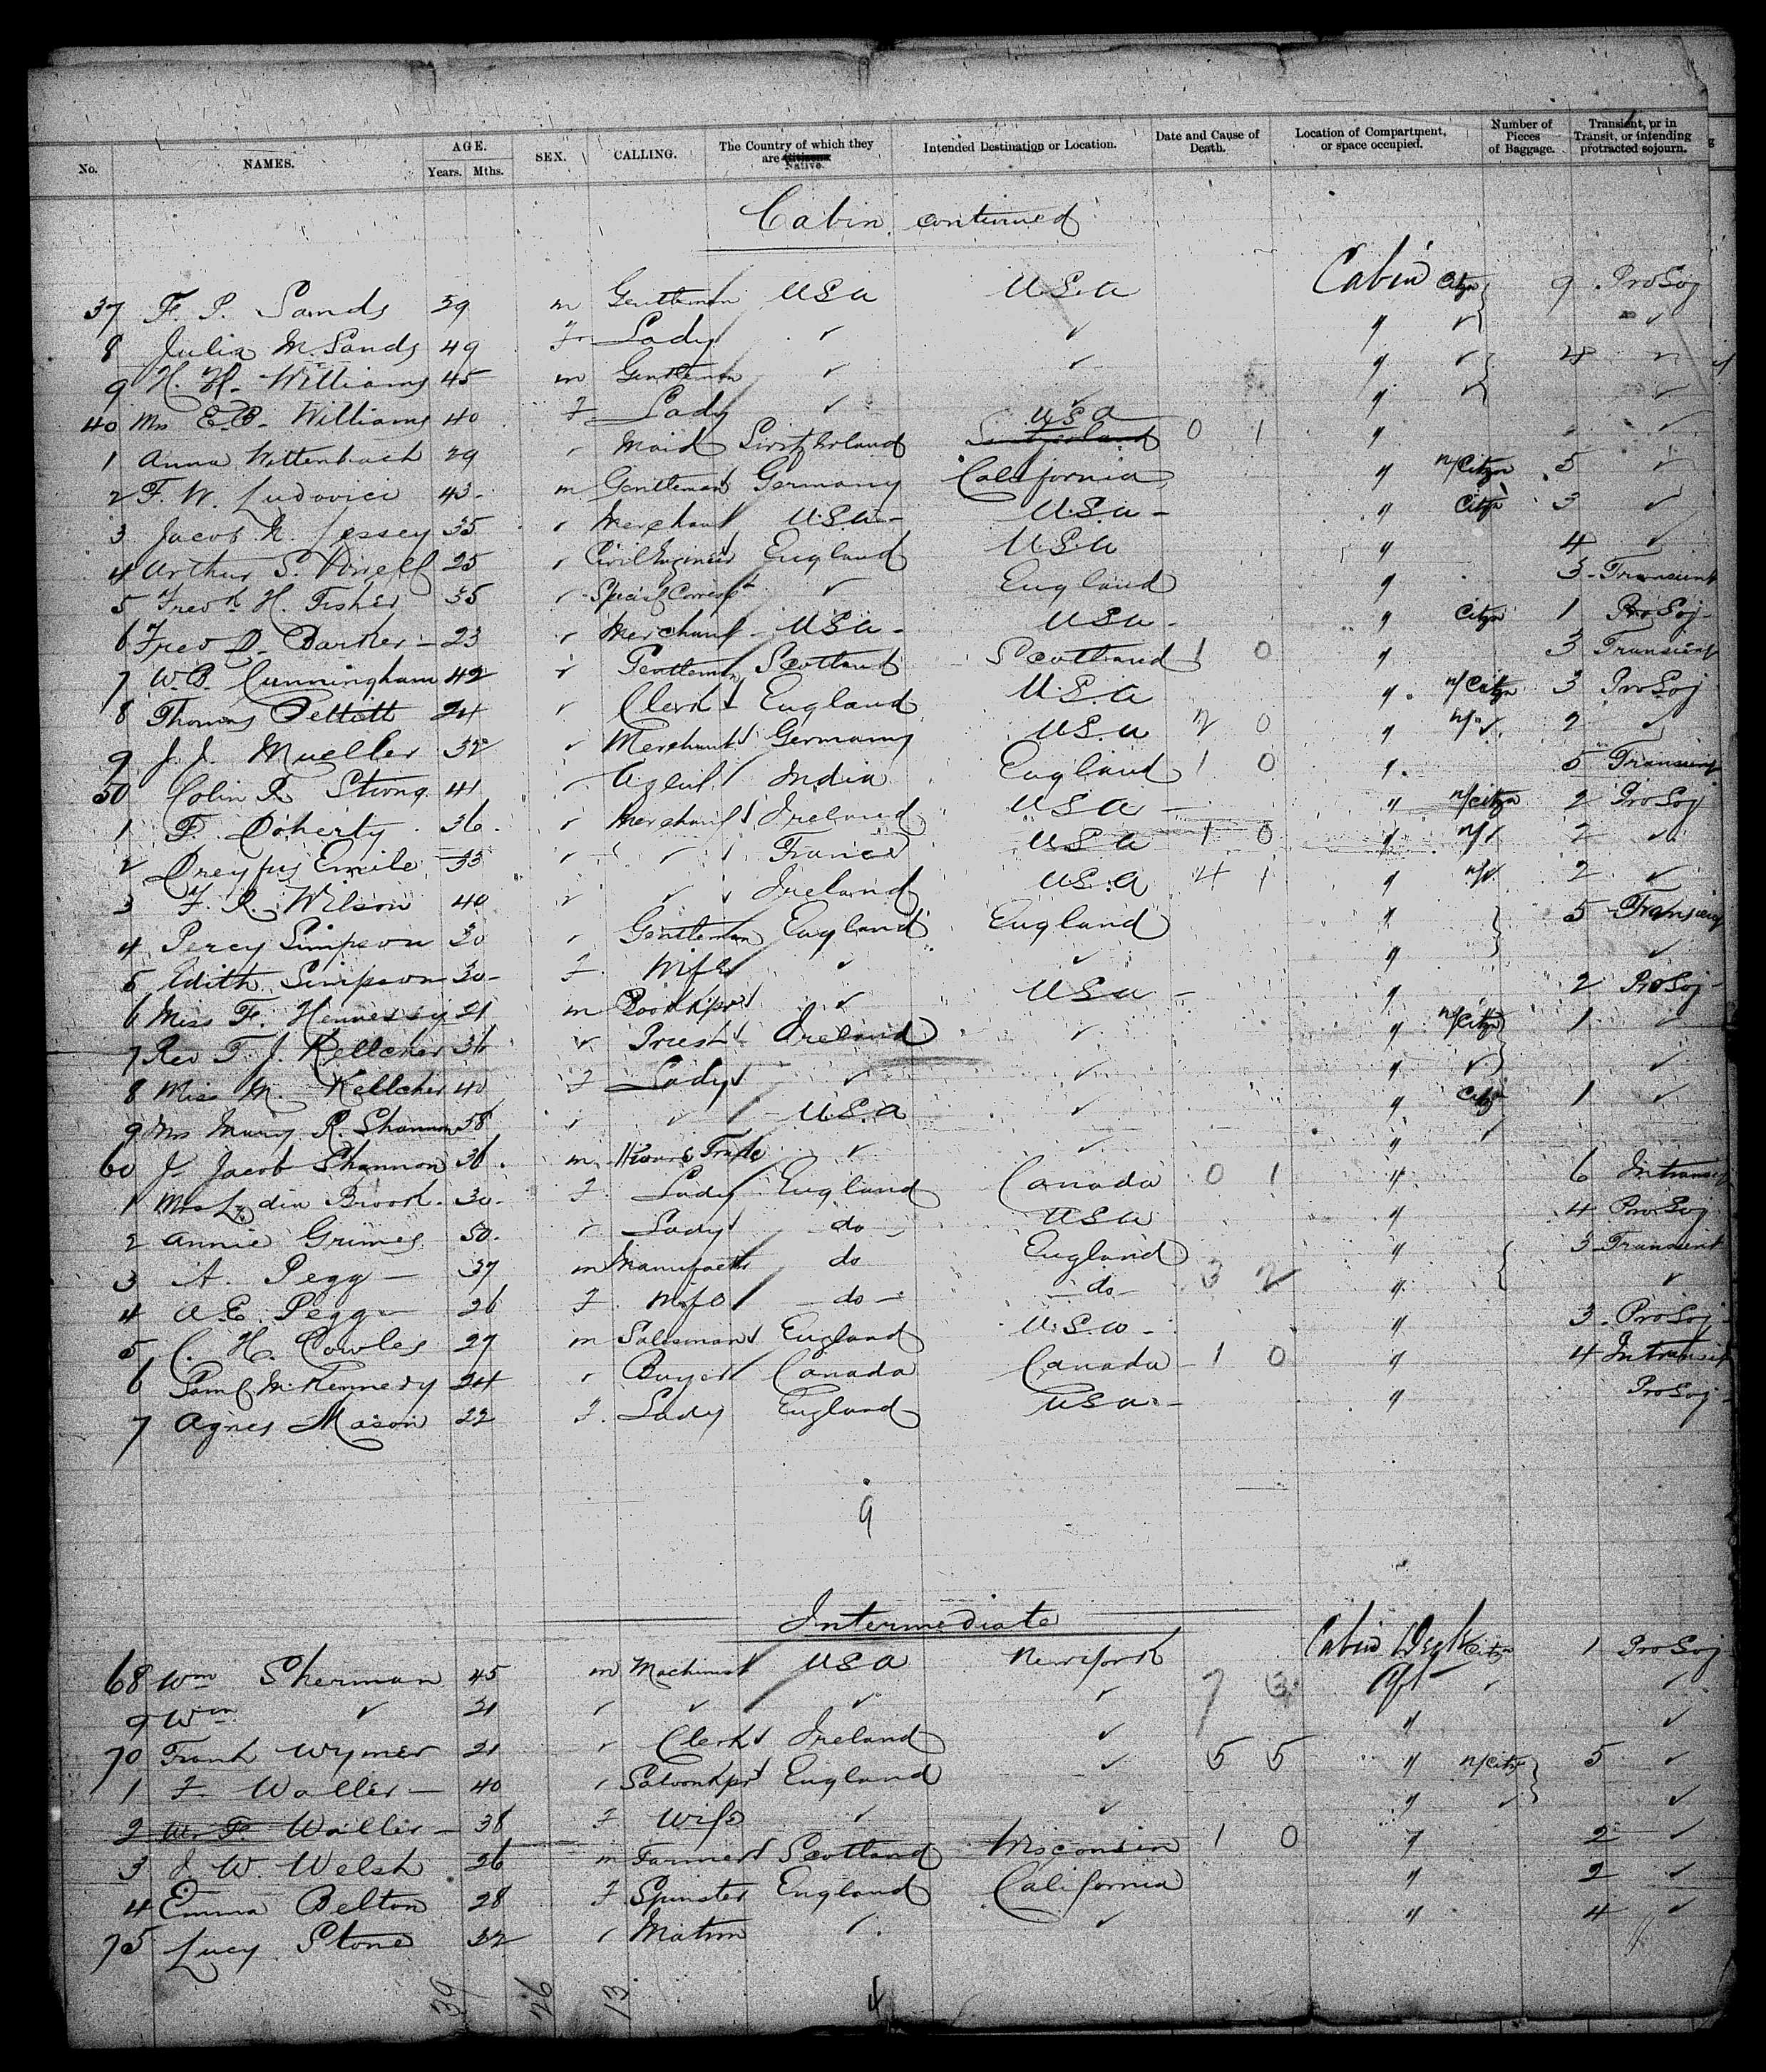 No. NAMES. AGE. Years. Mths. SEX. CALLING. The Country of which they are Citizens Native. Intended Destination or Location. Date and Cause of Death. Location of Compartment, or space occupied. Number of Pieces of Baggage. Transient, or in Transit, or intending protracted sojourn.
Cabin continued
37 F. P. Sands 39 m Gentleman USA U.S.A Cabin Citzn 9 ProSoj
8 Julia M. Sands 49 F Lady ✓ ✓ " ✓ ✓
9 H. H. Williams 45 m Gentleman ✓ ✓ " ✓ 4 ✓
40 Mrs E. B. Williams 40 F Lady ✓ ✓ " ✓ ✓
1 Anna Wittenbach 29 ✓ Maid Switzerland Switzerland USA 0 1 " ✓
2 F. W. Ludovici 43 m Gentleman Germany California " n/Citzn 5 ✓
3 Jacob H. 35 ✓ Merchant U.S.A - U.S.A - " Citzn 3 ✓
4 Arthur S. 25 ✓ Civil Engineer England U.S.A " 4 ✓
5 Fredk H. Fisher 35 ✓ Special Correspt ✓ England " 3 - Transient
6 Fred D. Barker - 23 ✓ Merchant - USA - USA - " Citzn 1 ProSoj -
7 W. B. Cunningham 42 ✓ Gentleman Scotland Scotland 1 0 " 3 Transient
8 Thomas 24 ✓ Clerk England U.S.A " n/Citzn 3 ProSoj
9 J. J. Mueller 32 ✓ Merchant Germany U.S.A 2 0 " n/✓ 2 ✓
50 Colin R Strong 41 ✓ Agent India England 1 0 " 5 Transient
1 F. Doherty 36 ✓ Merchant Ireland USA - " n/Citzn 2 ProSoj
2 Dreyfus Emile 33 ✓ ✓ France USA 1 0 " n/✓ 2 ✓
3 F. R. Wilson 40 ✓ ✓ Ireland U.S.A 4 1 " n/✓ 2 ✓
4 Percy Simpson 30 ✓ Gentleman England England " 5 Transient
5 Edith Simpson 30 - F Wife ✓ ✓ " ✓
6 Miss F. Hennessy 21 m Bookkpr ✓ USA - " 2 ProSoj -
7 Rev T. J. Kellcher 36 ✓ Priest Ireland ✓ " n/Citzn 1 ✓
8 Miss M. Kellcher 40 F Lady ✓ ✓ " ✓ ✓
9 Mrs Mary R. Shannon 58 ✓ ✓ U.S.A ✓ " Citzn 1 ✓
60 J. Jacob Shannon 36 m Trade ✓ ✓ " ✓
1 Mrs Lydia Brook 30 - F. Lady England Canada 0 1 " 6 Intransit
2 Annie Grimes 50 ✓ Lady do - USA " 4 ProSoj
3 A. Pegg - 37 m Manufactr do England " 3 - Transient
4 A. E. Pegg - 26 F. Wife - do - - do - 3 2 " ✓
5 C. H. Cowles 27 m Salesman England U.S.A - " 3 - ProSoj -
6 Saml McKennery 24 ✓ Buyer Canada Canada - 1 0 " 4 Intransit
7 Agnes Mason 22 F. Lady England USA - " ProSoj -
9
Intermediate
68 Wm Sherman 45 m Machinist USA New York Cabin Deck Citzn 1 ProSoj
9 Wm ✓ 21 ✓ ✓ ✓ ✓ 7 3 Aft ✓ ✓
70 Frank Wymer 21 ✓ Clerk Ireland ✓ " ✓
1 F Waller - 40 ✓ Saloonkpr England ✓ 5 5 " n/Citzn 5 ✓
2 Mrs F. Waller - 38 F Wife ✓ ✓ " ✓ ✓
3 J. W. Welsh 26 m Farmer Scotland Wisconsin 1 0 " 2 ✓
4 Emma Belton 28 F. Spinster England California " 2 ✓
75 Lucy Stone 32 ✓ Matron ✓ ✓ " 4 ✓
39 26 13 4